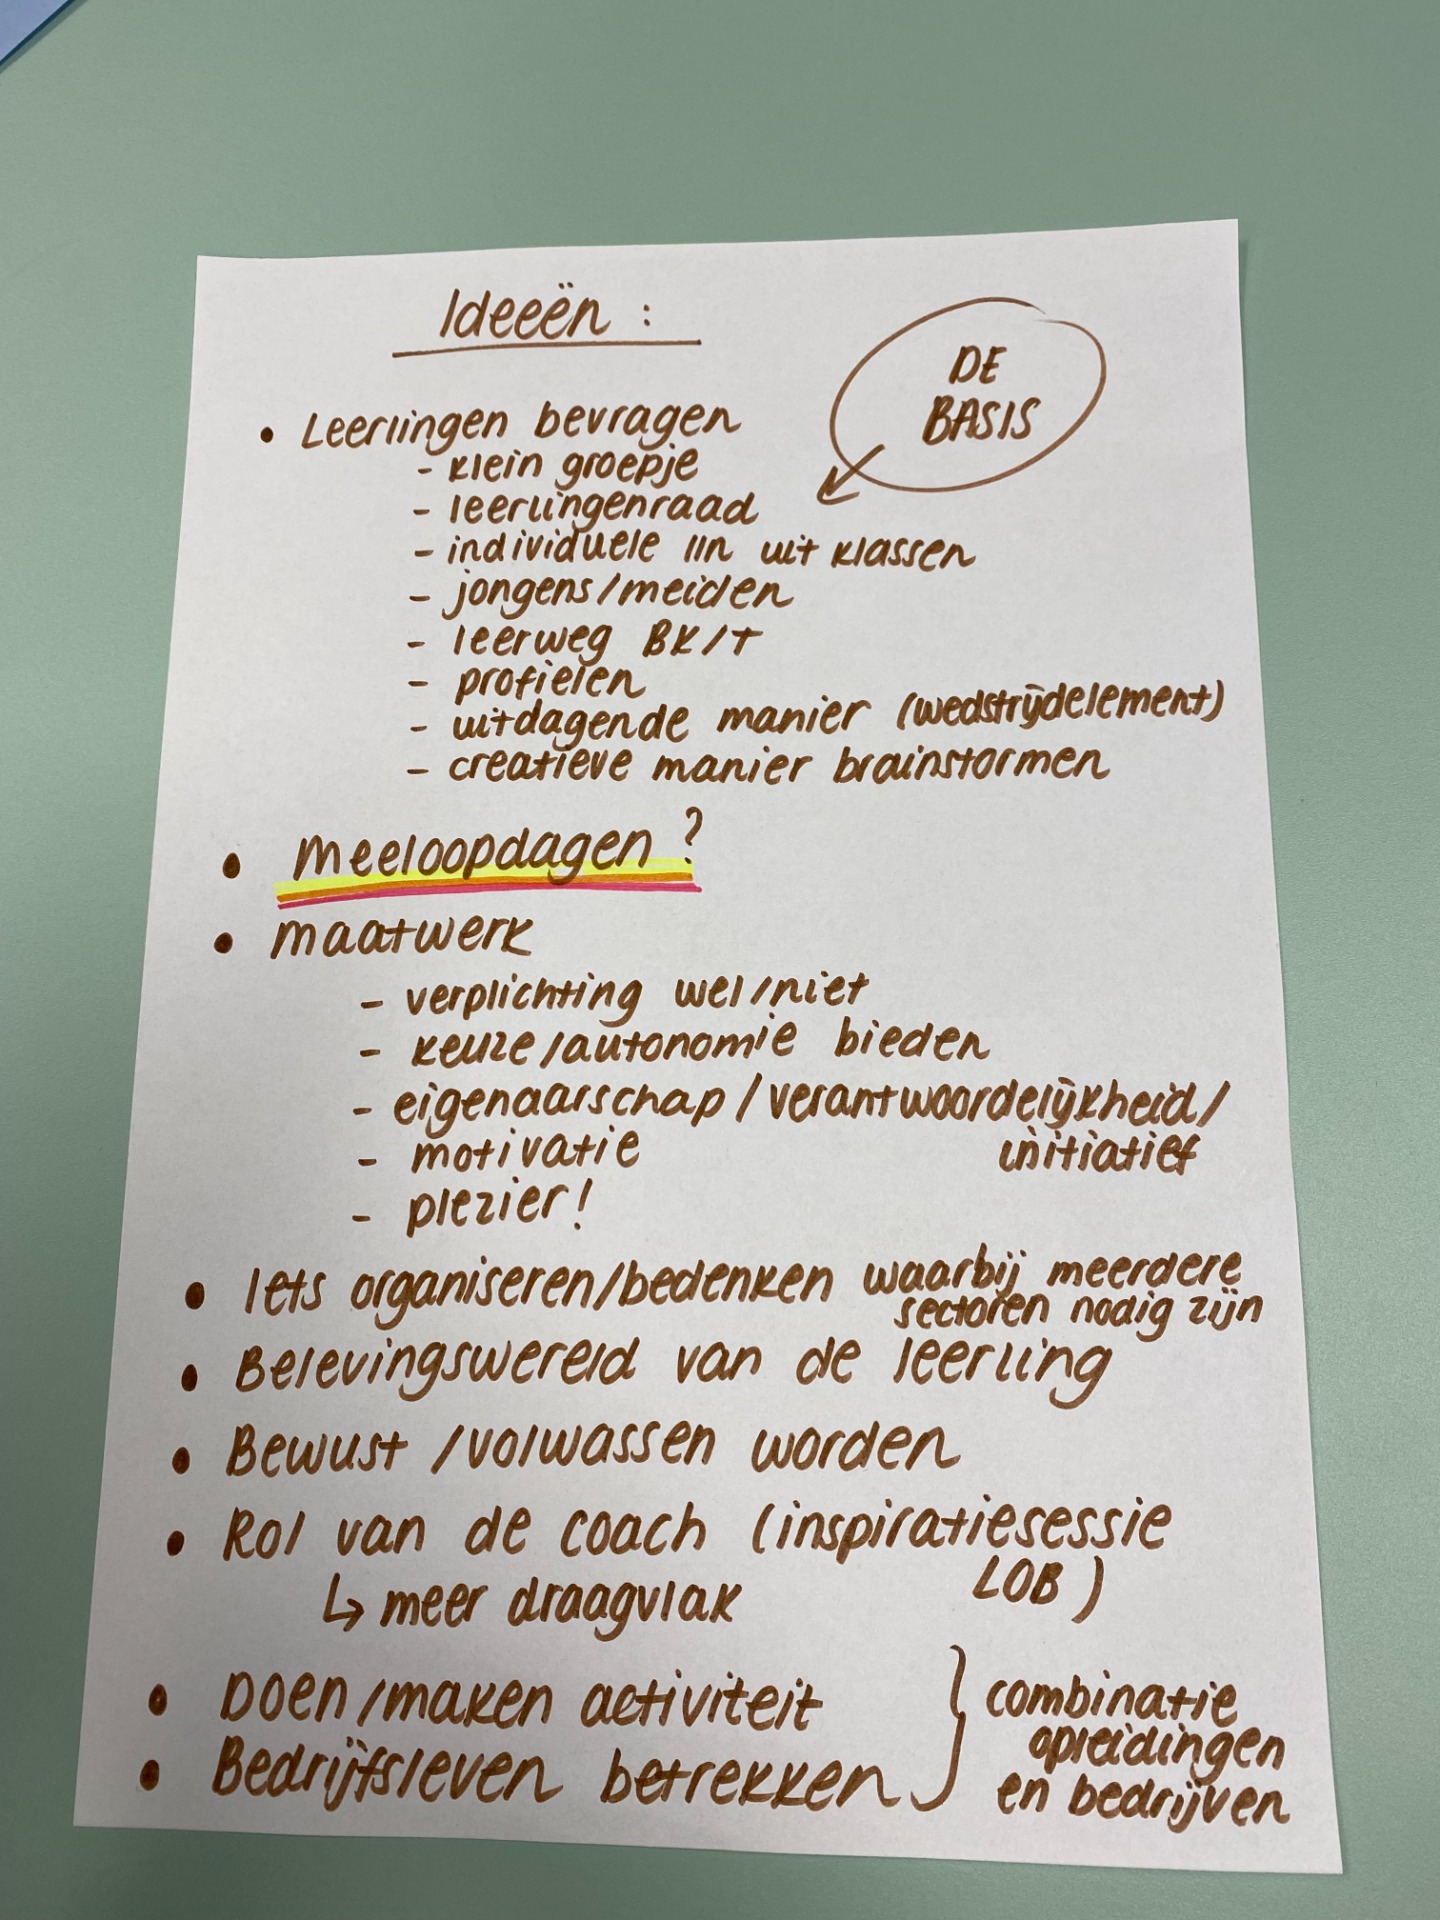 Ideeën :
DE
BASIS
• Leerlingen bevragen
- klein groepje
- leerlingenraad
- individuele lln uit klassen
- jongens/meiden
- leerweg BK/T
- profielen
- uitdagende manier (wedstrijdelement)
- creatieve manier brainstormen
• meeloopdagen ?
• maatwerk
- verplichting wel/niet
- keuze/autonomie bieden
- eigenaarschap/verantwoordelijkheid/
initiatief
- motivatie
- plezier!
• Iets organiseren/bedenken waarbij meerdere
sectoren nodig zijn
• Belevingswereld van de leerling
• Bewust/volwassen worden
• Rol van de coach (inspiratiesessie
LOB)
↳ meer draagvlak
• Doen/maken activiteit
• Bedrijfsleven betrekken
} combinatie
opleidingen
en bedrijven